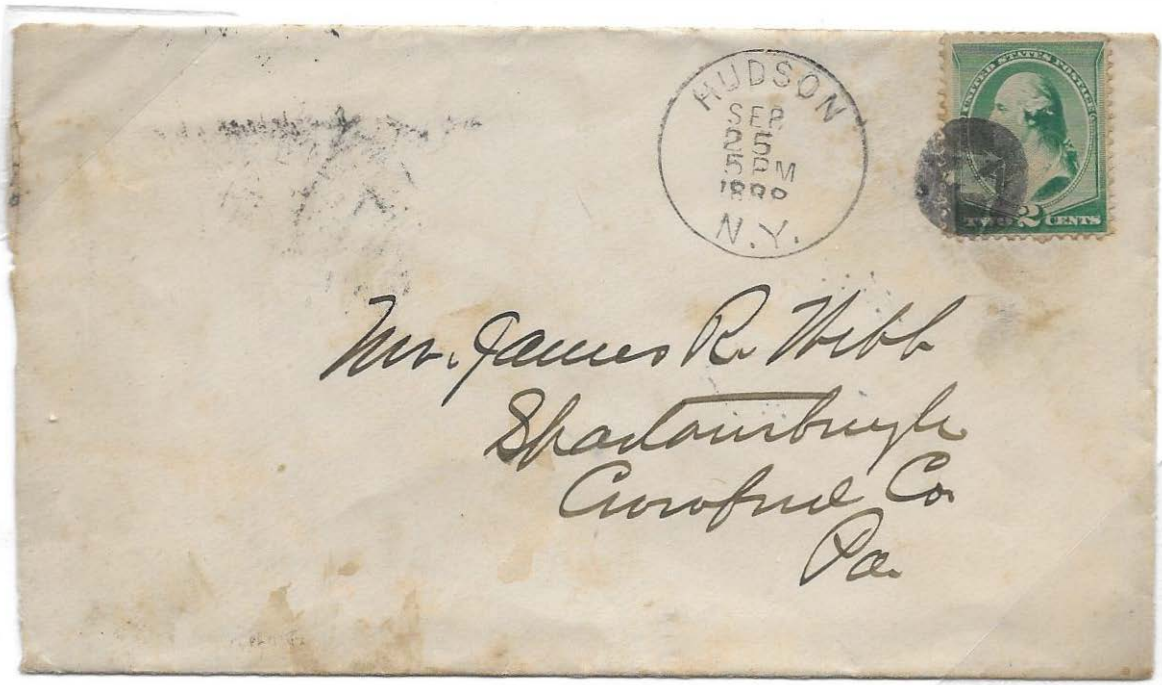 HUDSON
SEP
25
5 PM
N.Y.
UNITED STATES POSTAGE
TWO 2 CENTS
Mr. James R. Webb
Spartansburgh
Crawford Co.
Pa.